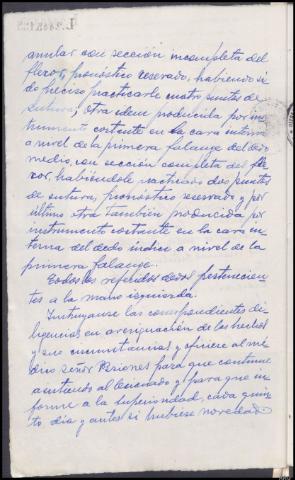 anular con sección incompleta del
flexor, pronóstico reservado, habiendo si
do preciso practicarle cuatro puntos de
sutura; otra idem producida por ins
trumento cortante en la cara interna
a nivel de la primera falange del dedo
medio, con sección completa del fle
xor, habiéndole practicado dos puntos
de sutura, pronóstico reservado y por
último otra también producida por
instrumento cortante en la cara in
terna del dedo índice a nivel de la
primera falange.
Todos los referidos dedos pertenecien
tes a la mano izquierda.
Instrúyanse las correspondientes di
ligencias en averiguación de los hechos
y sus circunstancias y ofíciese al mé
dico señor Briones para que continúe
asistiendo al lesionado y para que in
forme a la superioridad, cada quin
to día y antes si hubiese novedad.